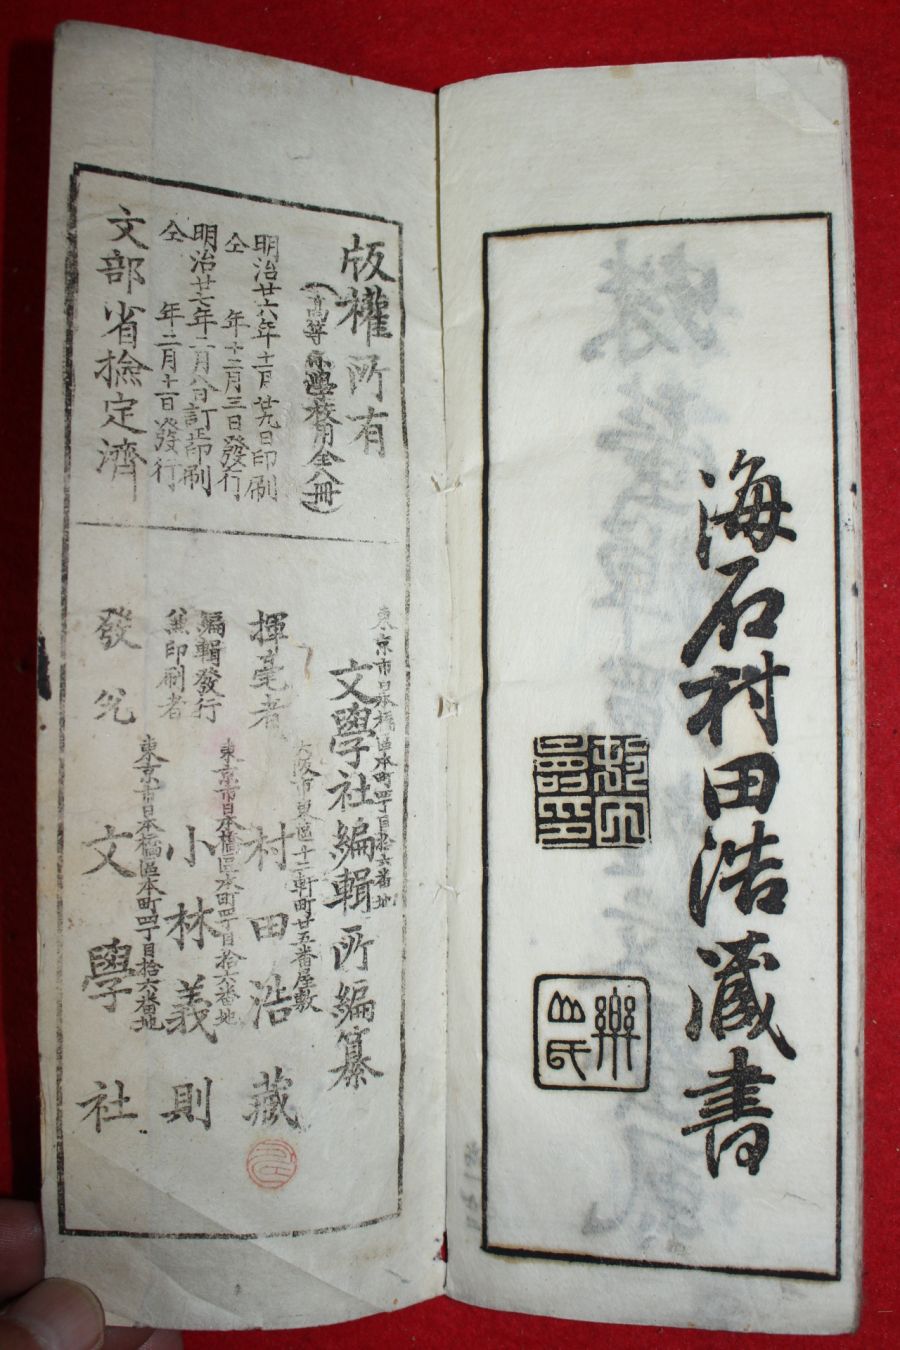 海石村田浩蔵書
樂山氏
版權所有
（高等小學校用全八冊）
明治廿六年十一月廿九日印刷
仝　年十二月三日發行
明治廿七年二月八日訂正印刷
仝　年二月十一日發行
文部省檢定濟
東京市日本橋區本町四丁目拾六番地
文學社編輯所編纂
大阪市東區十二軒町廿五番屋敷
揮毫者　村田浩藏
東京市日本橋區本町四丁目拾六番地
編輯發行兼印刷者　小林義則
東京市日本橋區本町四丁目拾六番地
發兌　文學社